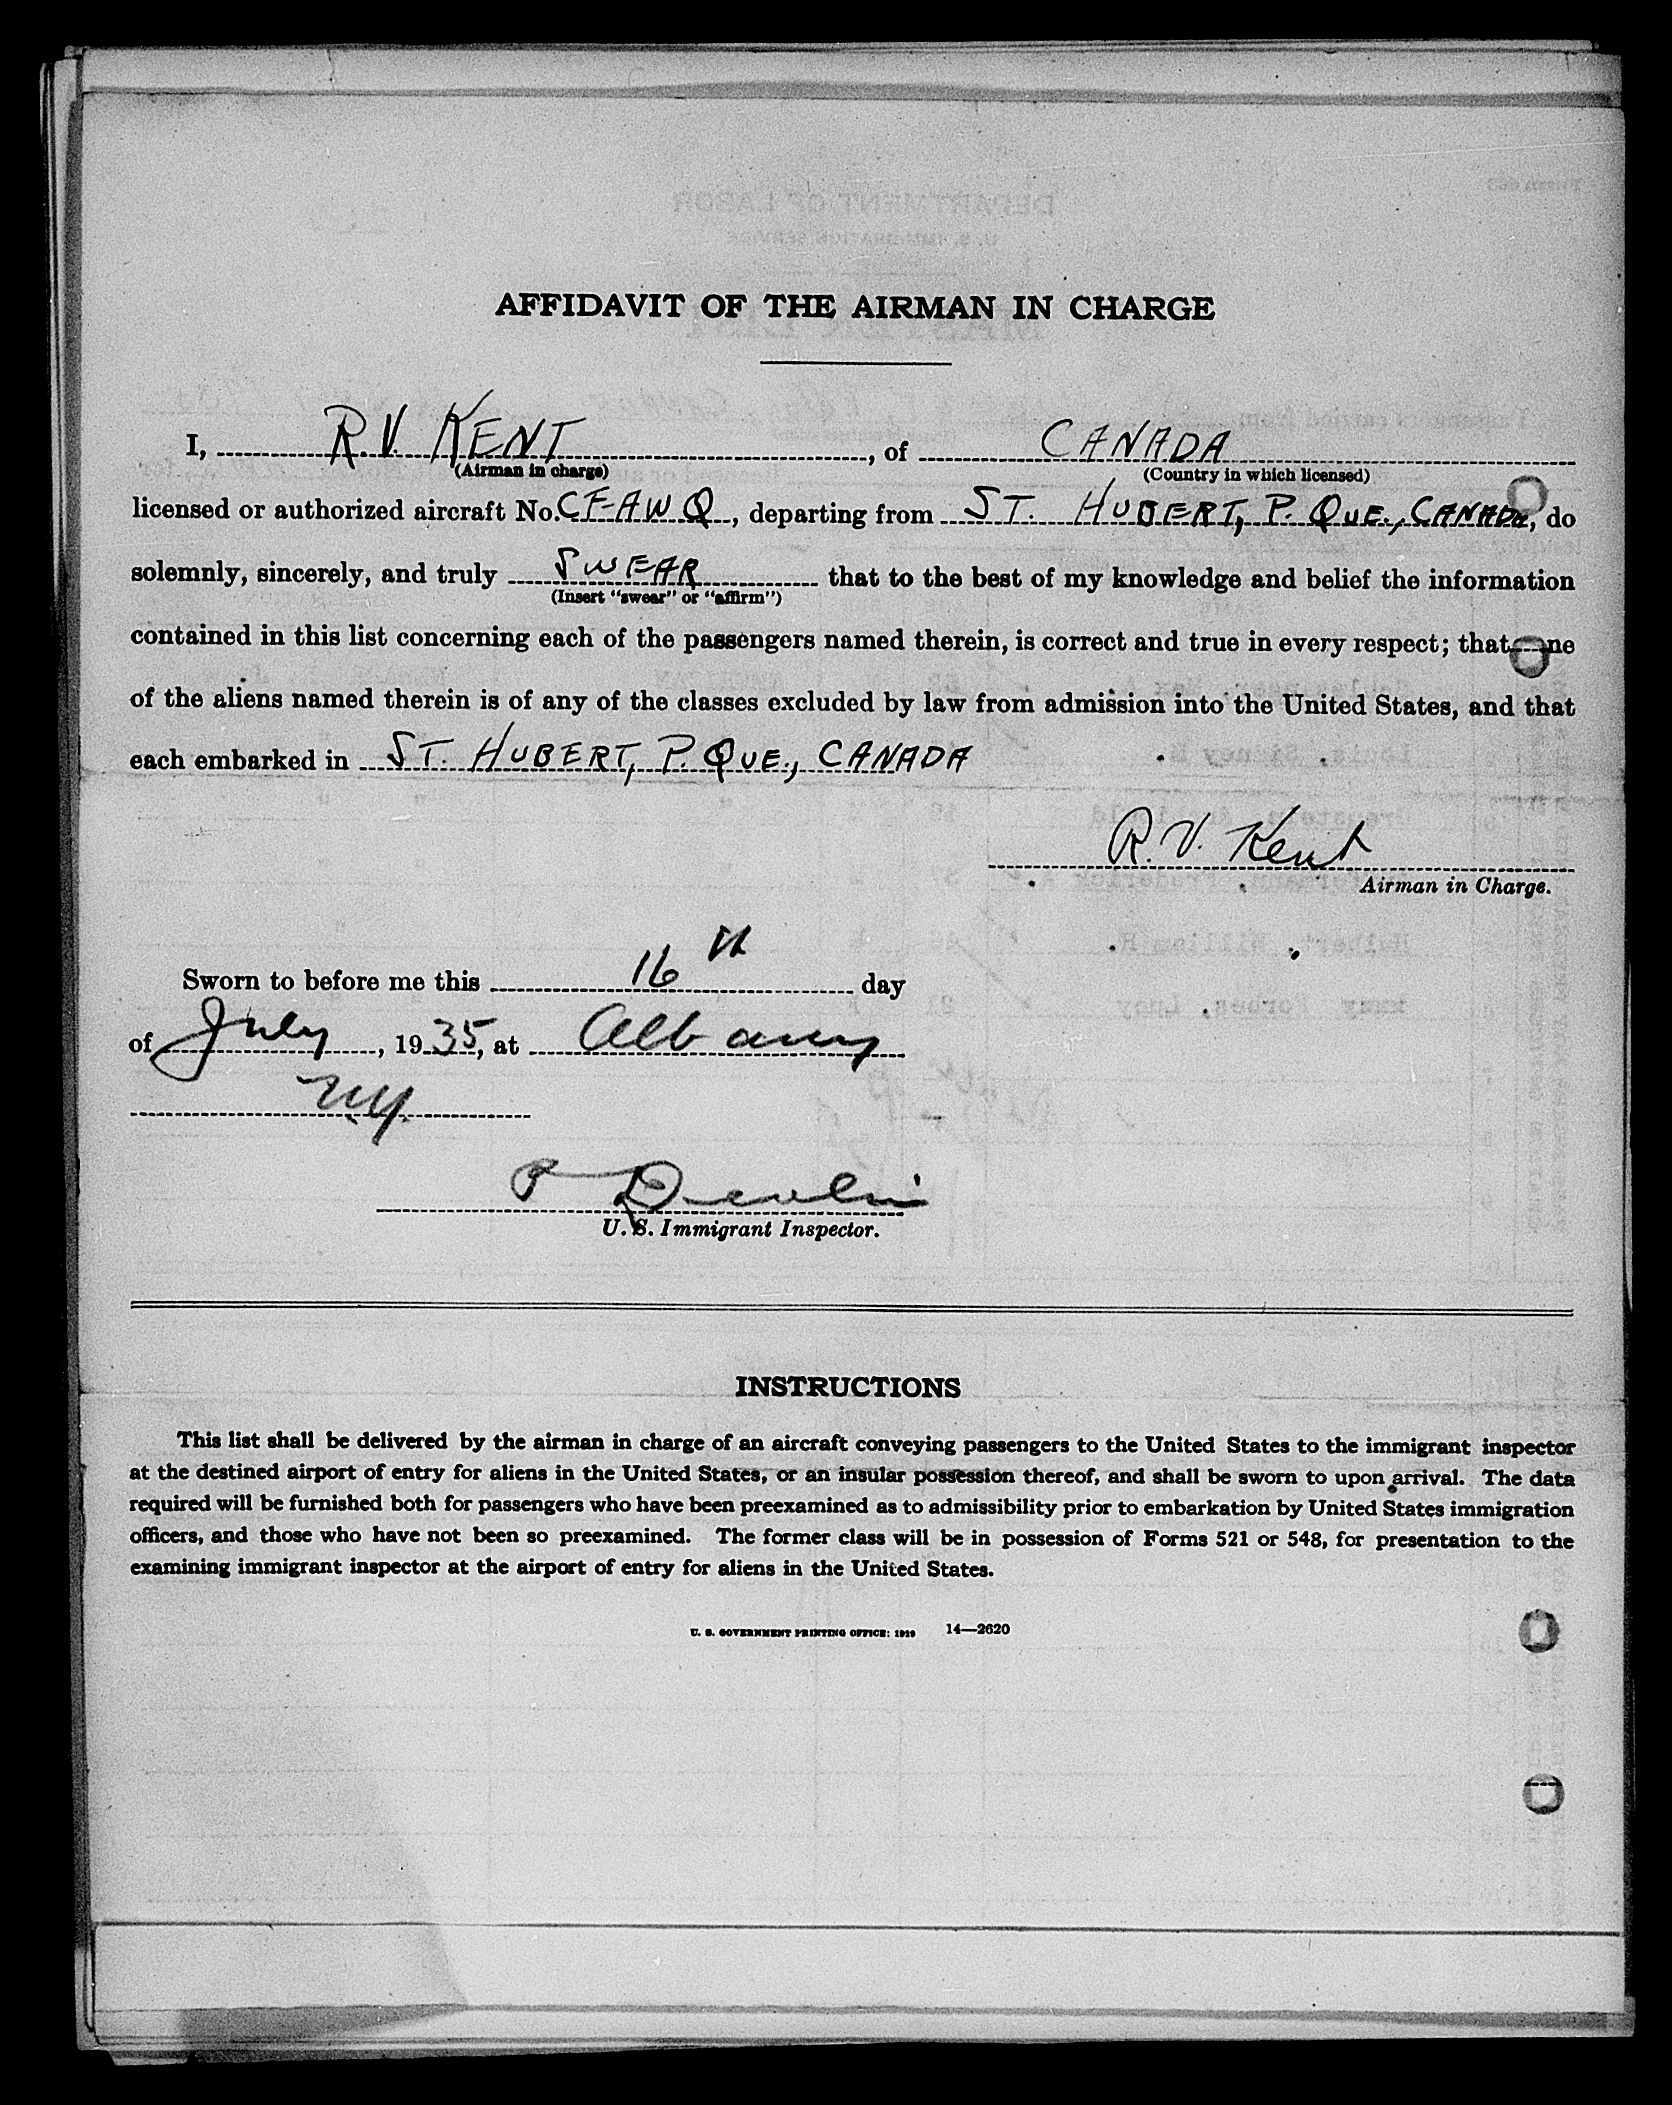 AFFIDAVIT OF THE AIRMAN IN CHARGE
I, R.V. KENT, of CANADA
(Airman in charge) (Country in which licensed)
licensed or authorized aircraft No. CF-AWQ, departing from ST. HUBERT, P. QUE., CANADA, do
solemnly, sincerely, and truly SWEAR that to the best of my knowledge and belief the information
(Insert "swear" or "affirm")
contained in this list concerning each of the passengers named therein, is correct and true in every respect; that ne
of the aliens named therein is of any of the classes excluded by law from admission into the United States, and that
each embarked in ST. HUBERT, P. QUE., CANADA
R. V. Kent
Airman in Charge.
Sworn to before me this 16th day
of July, 1935, at Albany
NY.
Devlin
U. S. Immigrant Inspector.
INSTRUCTIONS
This list shall be delivered by the airman in charge of an aircraft conveying passengers to the United States to the immigrant inspector
at the destined airport of entry for aliens in the United States, or an insular possession thereof, and shall be sworn to upon arrival. The data
required will be furnished both for passengers who have been preexamined as to admissibility prior to embarkation by United States immigration
officers, and those who have not been so preexamined. The former class will be in possession of Forms 521 or 548, for presentation to the
examining immigrant inspector at the airport of entry for aliens in the United States.
U. S. GOVERNMENT PRINTING OFFICE: 1929 14—2620